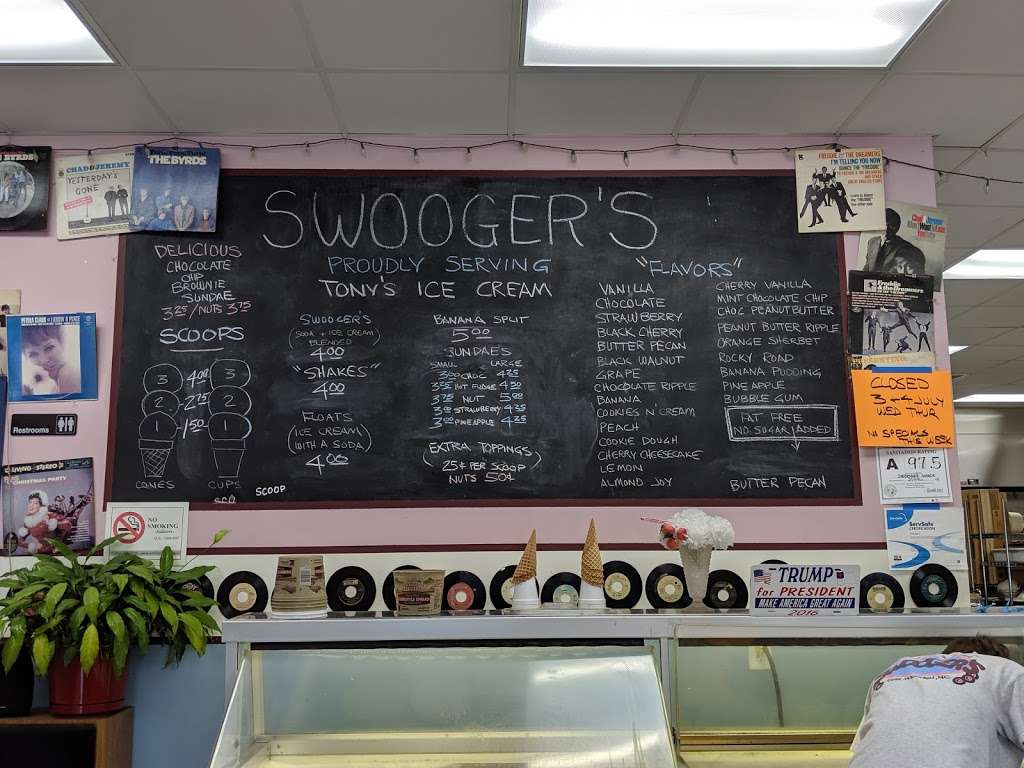 SWOOGER'S
PROUDLY SERVING
TONY'S ICE CREAM
DELICIOUS
CHOCOLATE
CHIP
BROWNIE
SUNDAE
3.25 /NUTS 3.75
SCOOPS
3 4.00 3
2 2.75 2
1 1.50 1
CONES
CUPS
SCOOP
SWOOGER'S
(SODA + ICE CREAM)
BLENDED
4.00
"SHAKES"
4.00
FLOATS
(ICE CREAM)
(WITH A SODA)
4.00
BANANA SPLIT
5.00
SUNDAES
SMALL LARGE
CHOC
HOT FUDGE
NUT
STRAWBERRY
PINEAPPLE
EXTRA TOPPINGS
(25¢ PER SCOOP)
NUTS 50¢
"FLAVORS"
VANILLA
CHOCOLATE
STRAWBERRY
BLACK CHERRY
BUTTER PECAN
BLACK WALNUT
GRAPE
CHOCOLATE RIPPLE
BANANA
COOKIES N' CREAM
PEACH
COOKIE DOUGH
CHERRY CHEESECAKE
LEMON
ALMOND JOY
CHERRY VANILLA
MINT CHOCOLATE CHIP
CHOC PEANUTBUTTER
PEANUT BUTTER RIPPLE
ORANGE SHERBET
ROCKY ROAD
BANANA PUDDING
PINEAPPLE
BUBBLE GUM
FAT FREE
NO SUGAR ADDED
BUTTER PECAN
BYRDS
CHAD & JEREMY
YESTERDAY'S
GONE
THE BYRDS
FREDDIE AND THE DREAMERS
I'M TELLING YOU NOW
CLOSED
3 + 4 JULY
WED THUR
NO SPECIALS
THIS WEEK
SANITATION RATING
A 97.5
ServSafe
CERTIFICATION
Restrooms
LIVING STEREO
CHRISTMAS PARTY
NO
SMOKING
TRUMP
for PRESIDENT
MAKE AMERICA GREAT AGAIN
2016